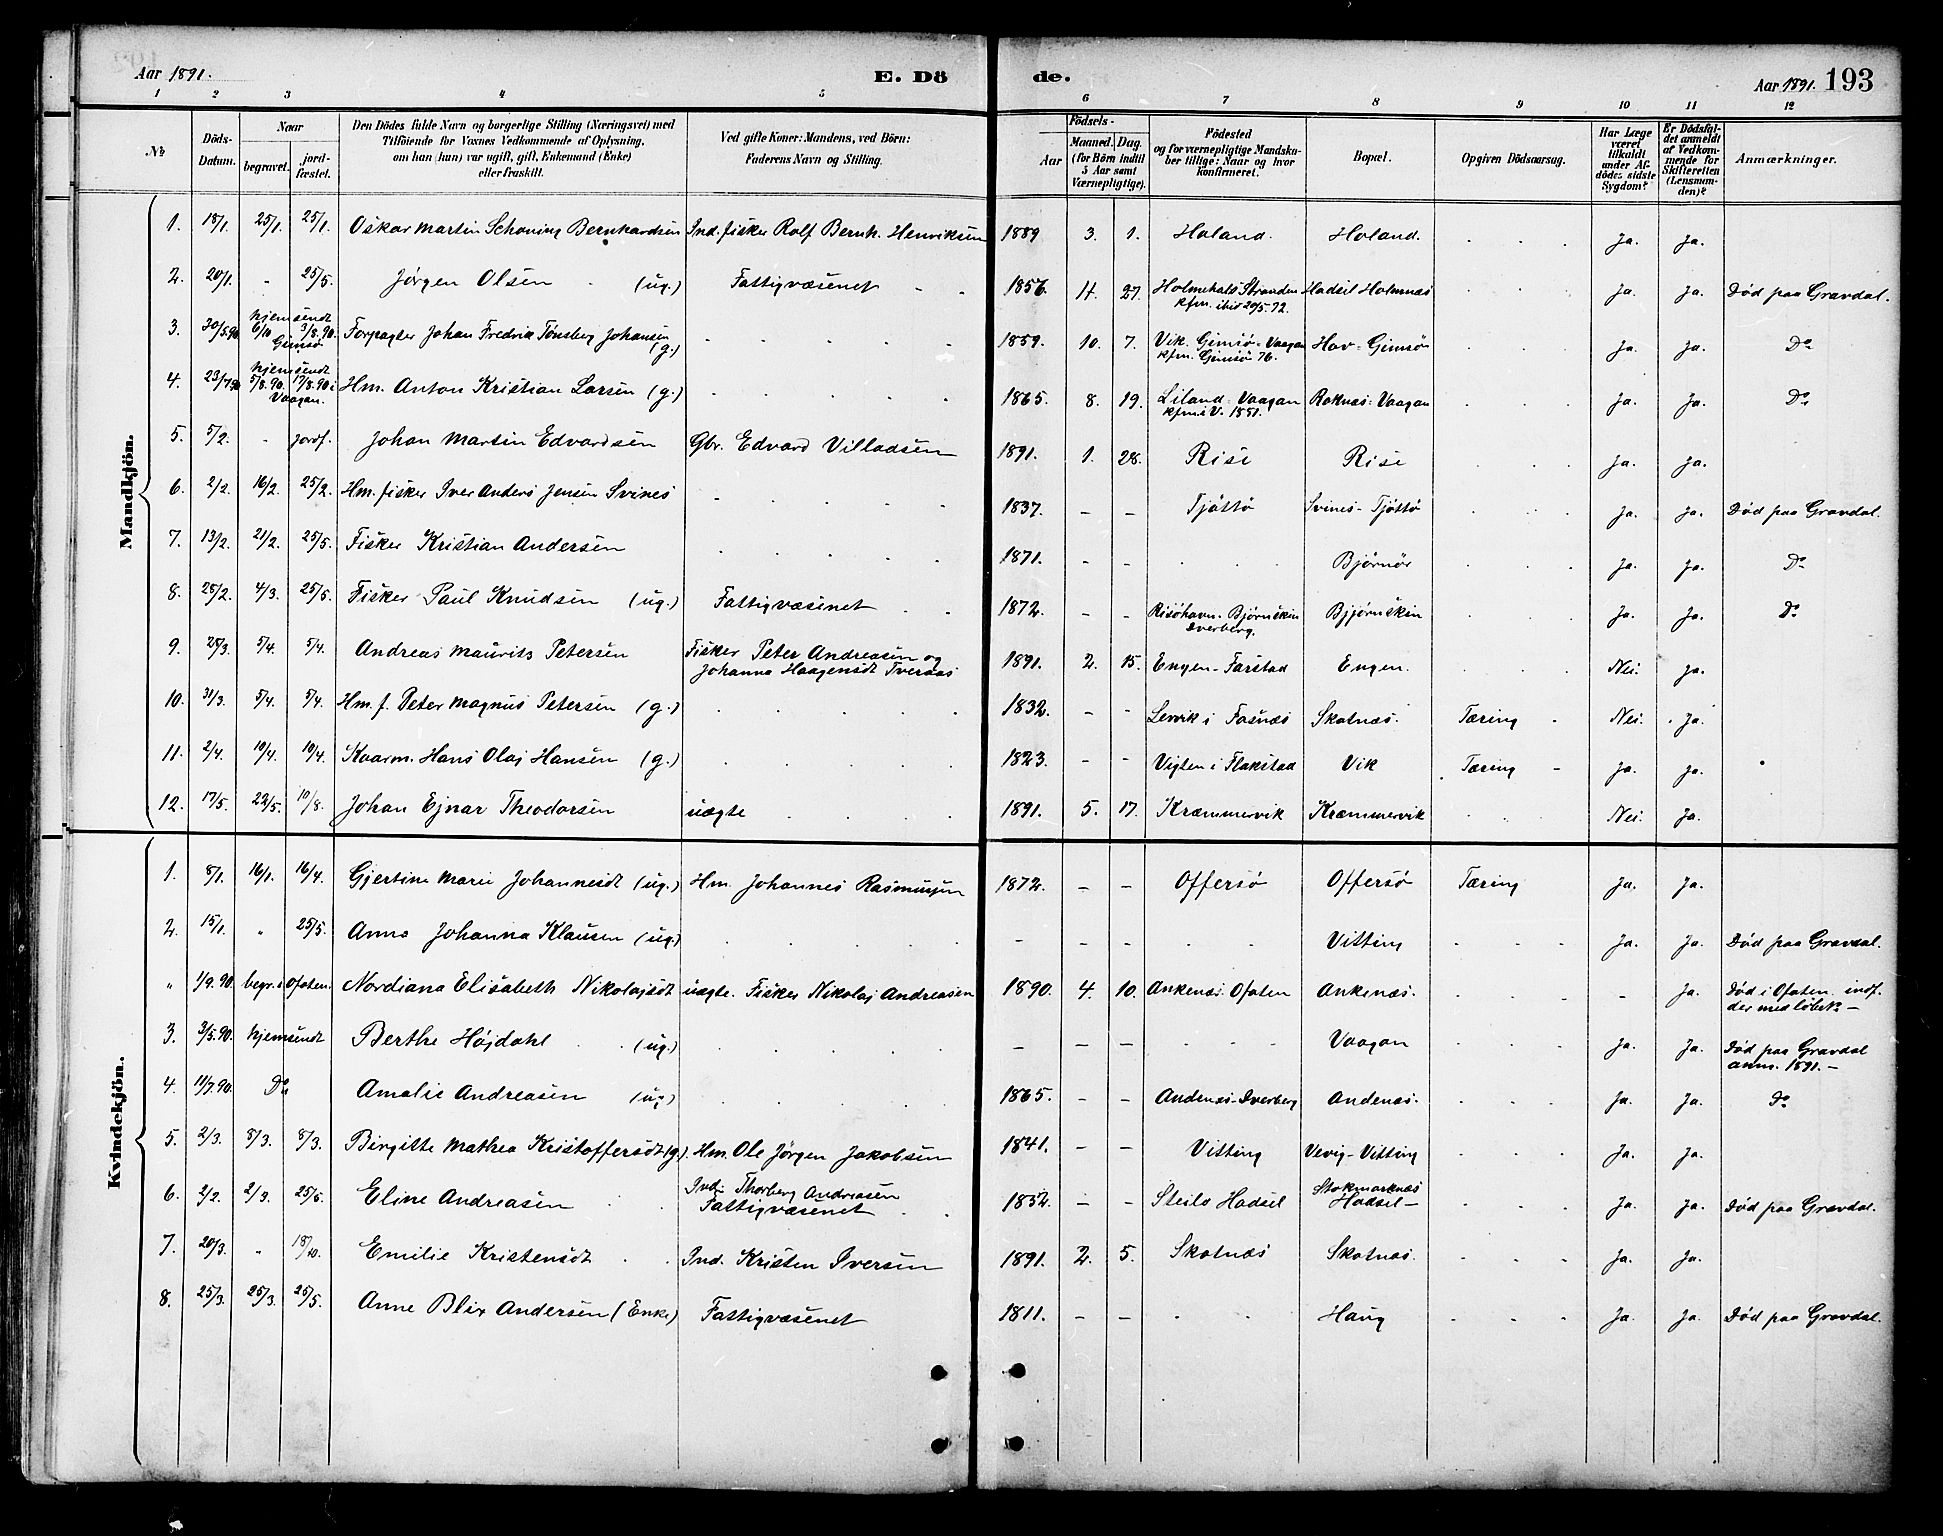 Aar 1891. E. Dö de. Aar 1891. 193
1 2 3 4 5 6 7 8 9 10 11 12
No. Döds-Datum. Naar begravet. jord-fæstet. Den Dödes fulde Navn og borgerlige Stilling (Næringsvei) med Tilföiende for Voxnes Vedkommende af Oplysning, om han (hun) var ugift, gift, Enkemand (Enke) eller fraskilt. Ved gifte Koner: Mandens, ved Börn: Faderens Navn og Stilling. Födsels- Aar Maaned. Dag. (for Börn indtil 5 Aar samt Værnepligtige). Födested og for værnepligtige Mandskaber tillige: Naar og hvor konfirmeret. Bopæl. Opgiven Dödsaarsag. Har Læge været tilkaldt under Afdödes sidste Sygdom? Er Dödsfaldet anmeldt af Vedkommende for Skifteretten (Lensmanden)? Anmærkninger.
Mandkjön.
1. 18/1. 25/1. 25/1. Oskar Martin Schøning Bernhardsen Ind. fisker Rolf Bernh. Henriksen 1889 3. 1. Holand. Holand. Ja. Ja.
2. 20/1. " 25/5. Jørgen Olsen (ug.) Fattigvæsenet 1856. 11. 27. Holmehals Stranden kfm. ibid 20/5.72. Hadsel Holmnæs Ja. Ja. Död paa Gravdal.
3. 30/5.90 hjemsendt 6/10 Gimsø 3/8.90. Forpagter Johan Fredrik Tønsberg Johansen (g.) 1859. 10. 7. Vik. Gimsø-Vaagan kfm. Gimsø 76. Hov-Gimsø Ja. Ja. Do
4. 23/7.90 hjemsendt 5/8.90. Vaagan. 17/8.90. Hm. Anton Kristian Larsen (g.) 1865. 8. 19. Liland-Vaagan kfm. i V. 1881. Roknæs-Vaagan Ja. Ja. Do
5. 5/2. " jordf. Johan Martin Edvardsen Gbr. Edvard Villadsen 1891. 1. 28. Rise Rise Ja. Ja.
6. 2/2. 16/2. 25/2. Hm. fisker Iver Anders Jensen Svines 1837. - - Tjøttø Svines-Tjøttø Ja. Ja. Död paa Gravdal.
7. 13/2. 21/2. 25/5. Fisker Kristian Andersen 1871. - - Bjørnør Ja. Ja. Do
8. 25/2. 4/3. 25/5. Fisker Paul Knudsen (ug.) Fattigvæsenet 1872. - - Risøhavn-Bjørnskin Dverberg. Bjjørnskin Ja. Ja. Do
9. 25/3. 5/4. 5/4. Andreas Maurits Petersen Fisker Peter Andreasen og Johanna Haagensdt Tveraas 1891. 2. 15. Engen-Farstad Engen. Nei. Ja.
10. 31/3. 5/4. 5/4. Hm. f. Peter Magnus Petersen (g.) 1832. - - Lervik i Fosnæs Skotnæs. Tæring Nei. Ja.
11. 2/4. 10/4. 10/4. Kaarm. Hans Olaj Hansen (g.) 1823. - - Vigten i Flakstad Vik Tæring Ja. Ja.
12. 17/5. 22/5. 10/8. Johan Ejnar Theodorsen uægte 1891. 5. 17. Kræmmervik Kræmmervik Nei. Ja.
Kvindekjön.
1. 8/1. 16/1. 16/4. Gjertine Marie Johannesdt (ug.) Hm. Johannes Rasmussen 1872. - - Offersø Offersø Tæring Ja. Ja.
2. 15/1. " 25/5. Anna Johanna Klausen (ug.) - Vitting Ja. Ja. Död paa Gravdal.
" 1/9.90. begr. i Ofoten. Nordiana Elisabeth Nikolajsdt uægte. Fisker Nikolaj Andreasen 1890. 4. 10. Ankenæs. Ofoten Ankenæs. - Ja. Död i Ofoten indf. der med løbek -
3. 3/5.90. hjemsendt Berthe Højdahl (ug.) - - - Vaagan Ja. Ja. Död paa Gravdal anm. 1891. -
4. 11/7.90. Do Amalie Andreasen (ug) 1865. - - Andenæs-Dverberg Andenæs. Ja. Ja. Do
5. 2/3. 8/3. 8/3. Birgitte Mathea Kristoffersdt (g.) Hm. Ole Jørgen Jakobsen 1841. - - Vitting Vevig-Vitting Ja. Ja.
6. 2/2. 2/3. 25/5. Eline Andreasen Ind. Thorberg Andreasen Fattigvæsenet 1852 - - Steilo Hadsel Stokmarknæs Hadsel - Ja. Ja. Död paa Gravdal.
7. 20/3. " 18/10. Emilie Kristensdt Ind. Kristen Iversen 1891. 2. 5. Skotnæs Skotnæs. Ja. Ja.
8. 25/3. 25/3. 25/5. Anne Blix Andersen (Enke) Fattigvæsenet 1811. - - Haug Ja. Ja. Död paa Gravdal.